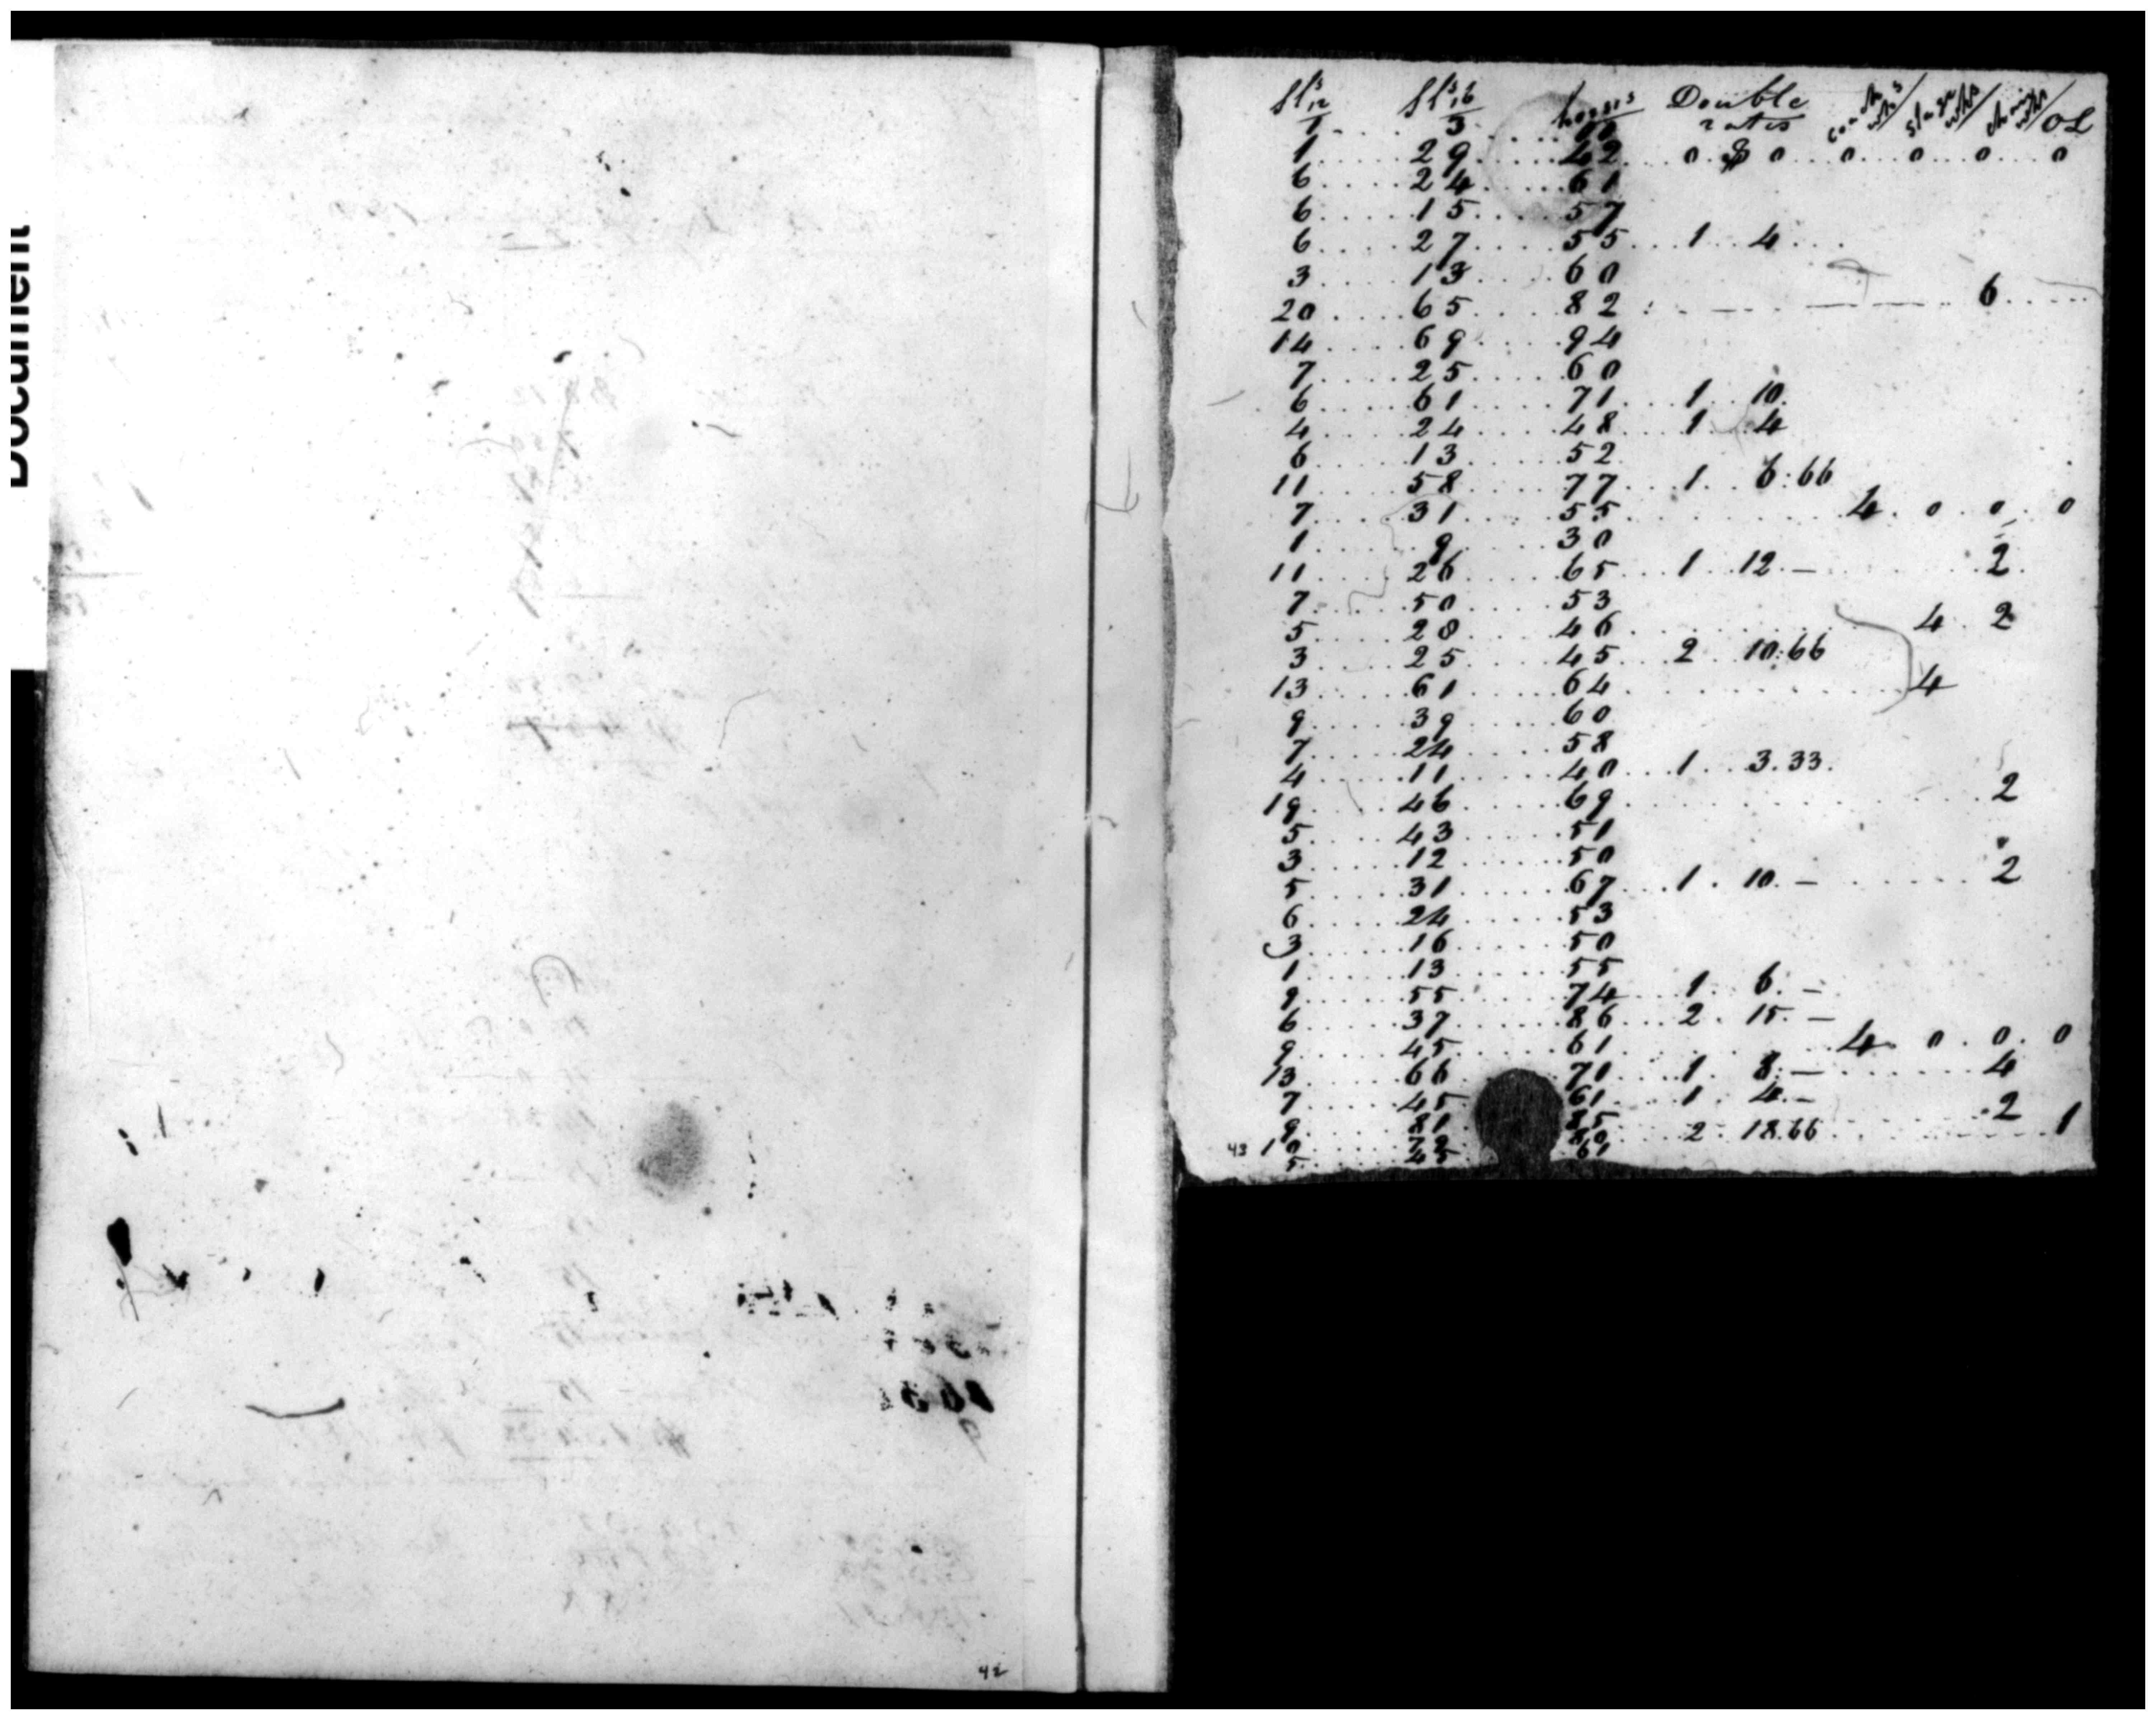 Document
42
Sls Sls horses Double coach stage chair OL
12 16 rates whs whs whs
1 3
1 29 42 0 $ 0 0 0 0 0
6 24 61
6 15 57
6 27 55 1 4
3 13 60
20 65 82 6
14 69 94
7 25 60
6 61 71 1 10
4 24 48 1 4
6 13 52
11 58 77 1 6:66
7 31 55 4 0 0 0
1 9 30
11 26 65 1 12 — 2
7 50 53
5 20 46 4 2
3 25 45 2 10:66
13 61 64 4
9 39 60
7 24 58
4 11 40 1 3.33
19 46 69 2
5 43 51
3 12 50
5 31 67 1 10 — 2
6 24 53
3 16 50
1 13 55
9 55 74 1 6 —
6 37 86 2 15 —
9 45 61 4 0 0 0
13 66 71 1 8 — 4
7 45 61 1 4 —
9 81 85 2
10 80 2 18.66 1
5 45 61
43